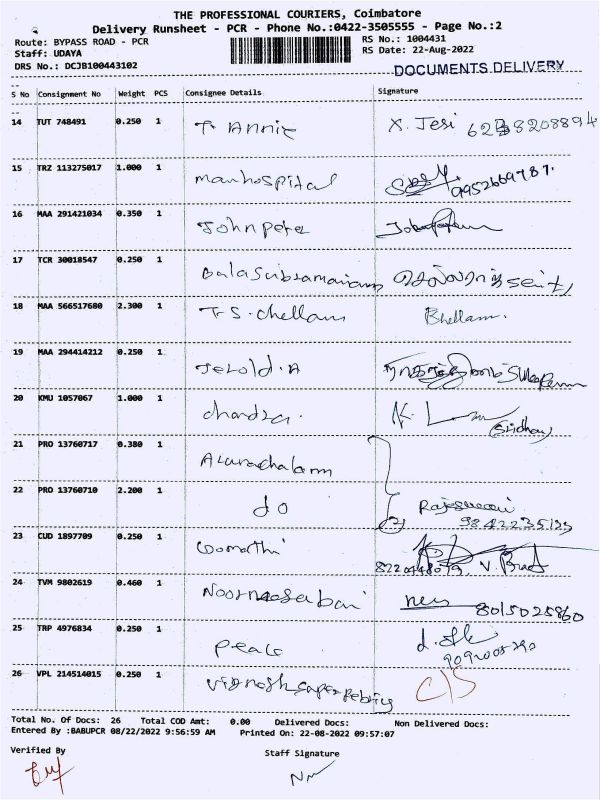 THE PROFESSIONAL COURIERS, Coimbatore
Delivery Runsheet - PCR - Phone No.:0422-3505555 - Page No.:2
Route: BYPASS ROAD - PCR
RS No.: 1004431
Staff: UDAYA
RS Date: 22-Aug-2022
DRS No.: DCJB100443102
DOCUMENTS.DELIVERY
S No Consignment No Weight PCS Consignee Details Signature
14 TUT 748491 0.250 1 T. Annie X. Jesi
15 TRZ 113275017 1.000 1 manhospital 9952669787.
16 MAA 291421034 0.350 1 John Peter
17 TCR 30018547 0.250 1 Balasubramaniam
18 MAA 566517680 2.300 1 T.S. chellam Bhellam.
19 MAA 294414212 0.250 1 Jerold.A
20 KMU 1057067 1.000 1 chandra. K. (Sridhar)
21 PRO 13760717 0.380 1 Arunachalam
22 PRO 13760710 2.200 1 do Rajeswari
23 CUD 1897709 0.250 1 Goomathi
24 TVM 9802619 0.460 1 8015025860
25 TRP 4976834 0.250 1 peace
26 VPL 214514015 0.250 1 C/S
Total No. Of Docs: 26 Total COD Amt: 0.00 Delivered Docs: Non Delivered Docs:
Entered By :BABUPCR 08/22/2022 9:56:59 AM Printed On: 22-08-2022 09:57:07
Verified By
Staff Signature